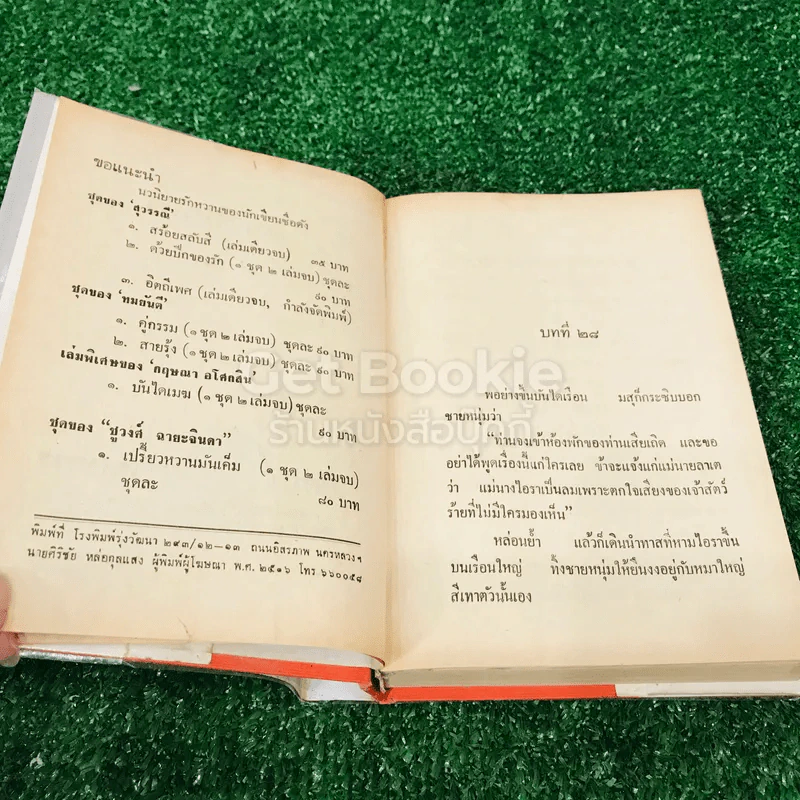 ขอแนะนำ
นวนิยายรักหวานของนักเขียนชื่อดัง
ชุดของ ‘สุวรรณี’
๑. สร้อยสลับสี (เล่มเดียวจบ) ๓๕ บาท
๒. ด้วยปีกของรัก (๑ ชุด ๒ เล่มจบ) ชุดละ
๘๐ บาท
๓. อิตถีเพศ (เล่มเดียวจบ, กำลังจัดพิมพ์)
ชุดของ ‘ทมยันตี’
๑. คู่กรรม (๑ ชุด ๒ เล่มจบ) ชุดละ ๘๐ บาท
๒. สายรุ้ง (๑ ชุด ๒ เล่มจบ) ชุดละ ๘๐ บาท
เล่มพิเศษของ ‘กฤษณา อโศกสิน’
๑. บันไดเมฆ (๑ ชุด ๒ เล่มจบ) ชุดละ
๘๐ บาท
ชุดของ “ชูวงศ์ ฉายะจินดา”
๑. เปรี้ยวหวานมันเค็ม (๑ ชุด ๒ เล่มจบ)
ชุดละ
๘๐ บาท
พิมพ์ที่ โรงพิมพ์รุ่งวัฒนา ๒๙๓/๑๒–๑๓ ถนนอิสรภาพ นครหลวงฯ
นายศิริชัย หล่อกุลแสง ผู้พิมพ์ผู้โฆษณา พ.ศ. ๒๕๑๖ โทร ๖๖๐๐๕๘
บทที่ ๒๘
พอย่างขึ้นบันไดเรือน มสุก็กระซิบบอก
ชายหนุ่มว่า
“ท่านจงเข้าห้องพักของท่านเสียเถิด และขอ
อย่าได้พูดเรื่องนี้แก่ใครเลย ข้าจะแจ้งแก่แม่นายลาเต
ว่า แม่นางไอราเป็นลมเพราะตกใจเสียงของเจ้าสัตว์
ร้ายที่ไม่มีใครมองเห็น”
หล่อนย้ำ แล้วก็เดินนำทาสที่หามไอราขึ้น
บนเรือนใหญ่ ทิ้งชายหนุ่มให้ยืนงงอยู่กับหมาใหญ่
สีเทาตัวนั้นเอง
Get Bookie
ร้านหนังสือบุ๊กกี้